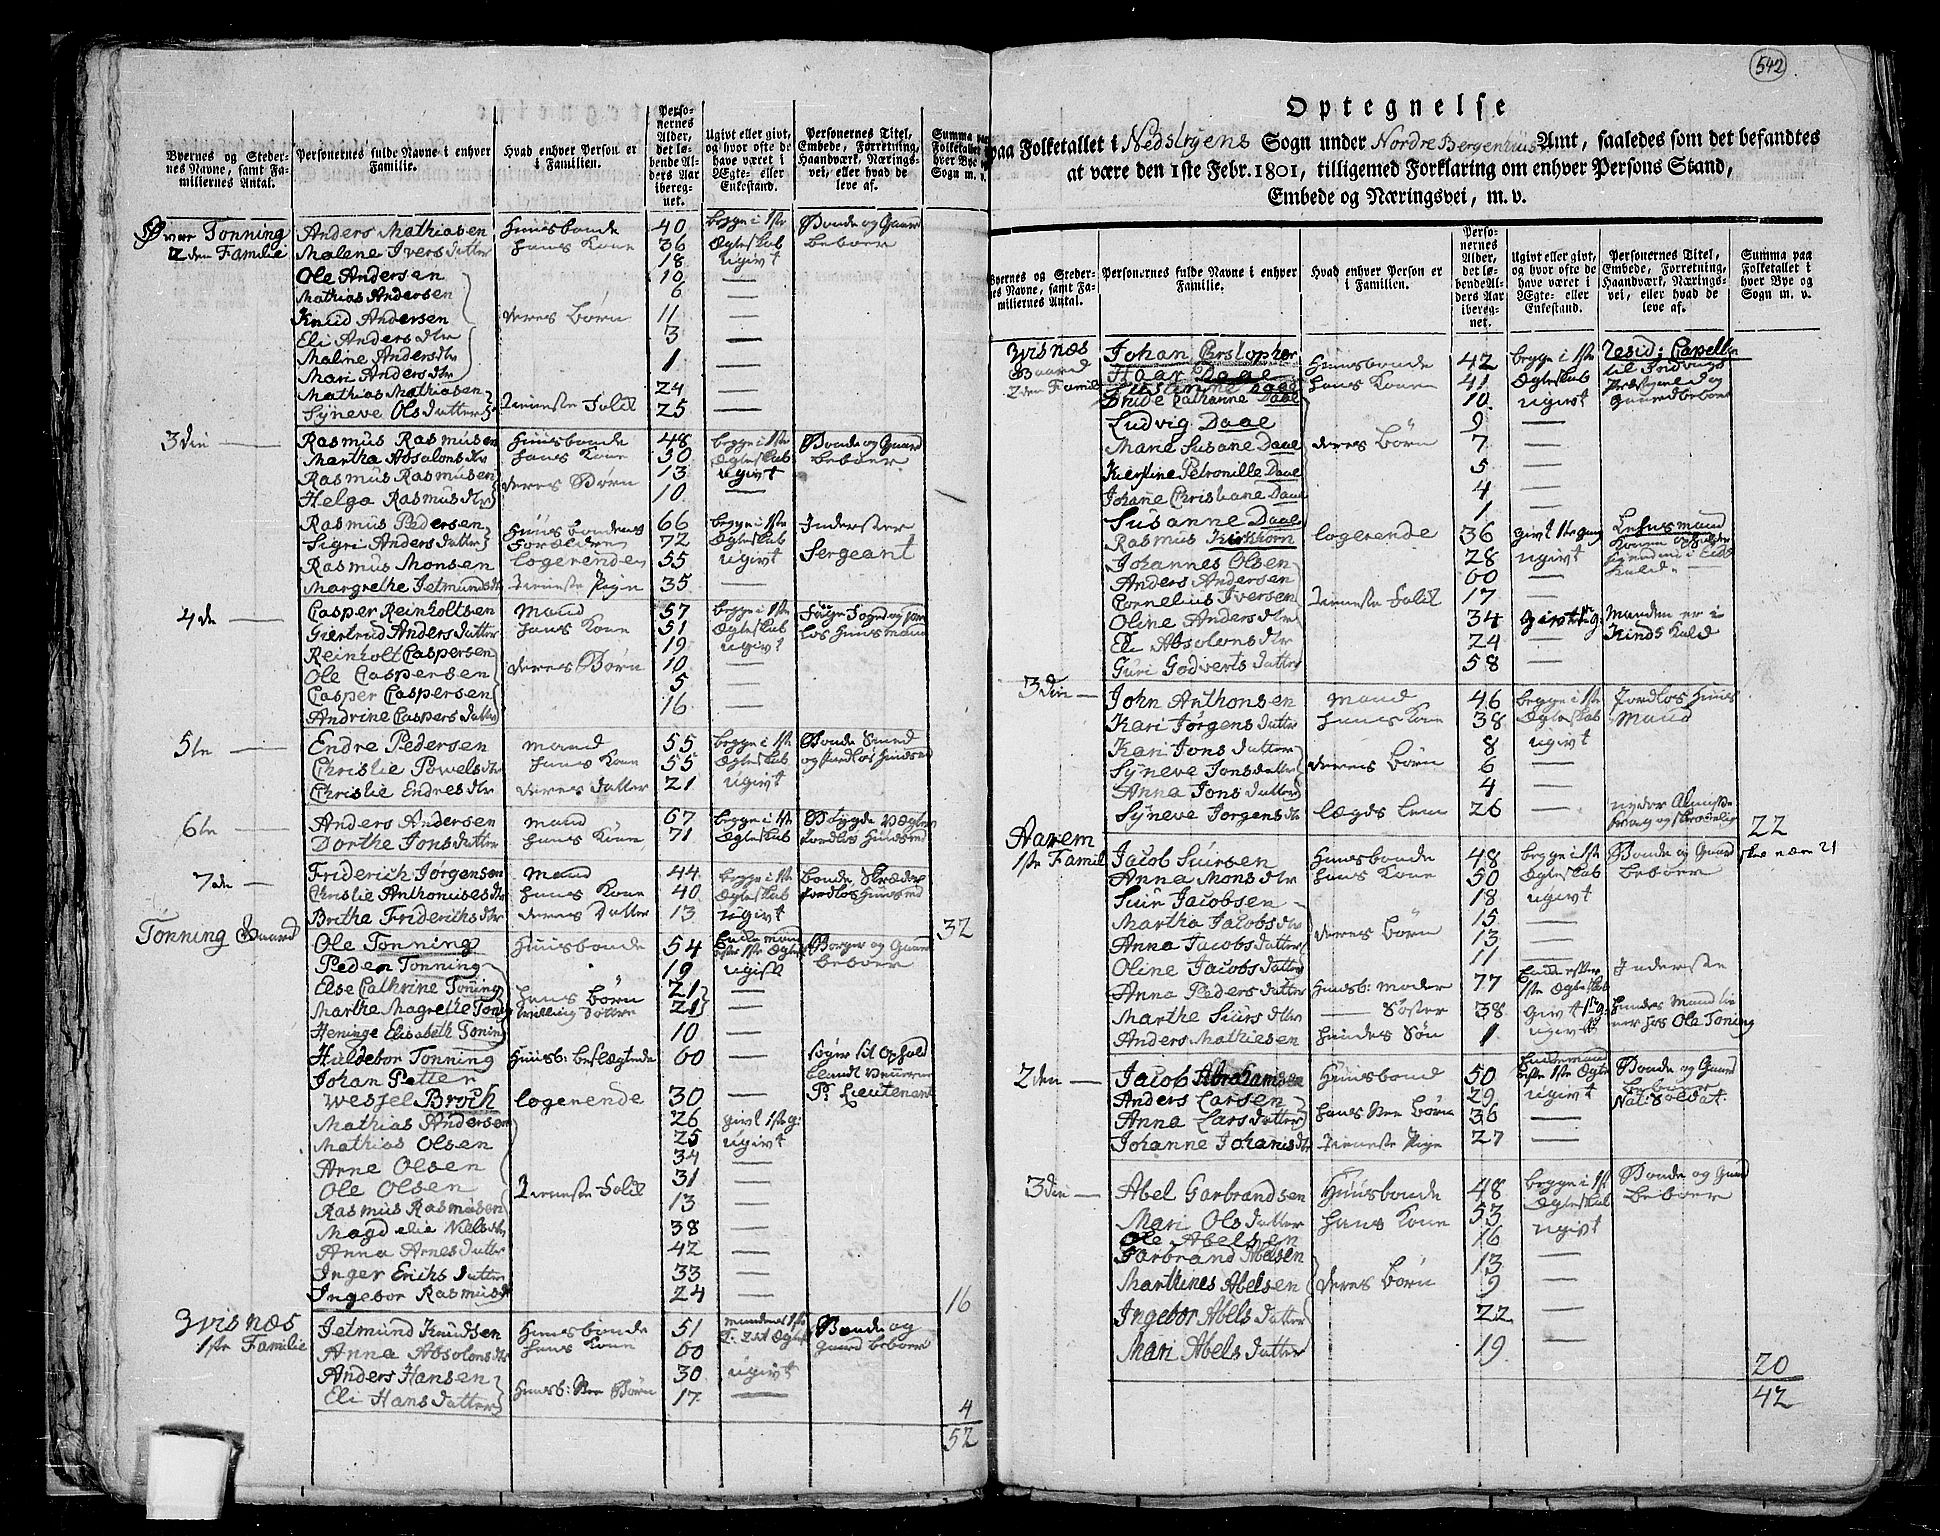 542
Byernes og Steder-
nes Navne, samt Fa-
miliernes Antal.
Personernes fulde Navne i enhver
Familie.
Hvad enhver Person er
i Familien.
Perso-
nernes
Alder,
det lø-
bende Al-
ders Aar
ibereg-
net.
Ugivt eller givt,
og hvor ofte de
have været i
Ægte- eller
Enkestand.
Personernes Titel,
Embede, Forretning,
Haandværk, Nærings-
vei, eller hvad de
leve af.
Summa paa
Folketallet i
hver Bye og
Sogn m. v.
Tonning Anders Mathiasen Huusbonde 40 begge i 1ste Bonde og Gaard
2den Familie Malene Ivers datter hans Kone 36 Ægteskab beboer
Ole Andersen 18 ugivt
Mathias Andersen 10 —
Knud Andersen deres Børn 6 —
Eli Anders dtr 11 —
Maline Andersdtr 3 —
Mari Andersdtr 1 —
Mathias Mathiasen 24 —
Syneve Ols datter tieneste Folk 25 —
3die — Rasmus Rasmusen Huusbonde 48 begge i 1ste Bonde og Gaard
Martha Absalons dtr hans Kone 50 Ægteskab beboer
Rasmus Rasmusen deres Børn 13 ugivt
Helga Rasmus dtr 10 —
Rasmus Pedersen Huusbondens 66 begge i 1ste Inderster
Sigri Anders datter Forældre 72 Ægteskab
Rasmus Monsen logerende 55 ugivt Sergeant
Margrethe Jetmunds dtr tieneste Pige 35 —
4de — Casper Reinholtsen Mand 57 begge i 1ste
Giertrud Anders datter hans Kone 51 Ægteskab løs huusmand
Reinholt Caspersen 19 ugivt
Ole Caspersen deres Børn 10 —
Casper Caspersen 5 —
Andrine Caspers datter 16 —
5te — Endre Pedersen mand 55 begge i 1ste Bonde Smed
Christie Powels dtr hans Kone 55 Ægteskab og jordløs huusmd
Christie Endres dtr deres datter 21 ugivt
6te — Anders Andersen mand 67 begge i 1ste
Dorthe Jons datter hans Kone 71 Ægteskab jordløs huusmd
7de — Friderich Jørgensen Mand 44 begge i 1ste bonde Skræder
Christie Anthonises dtr hans Kone 40 Ægteskab jordløs huusmd
Britha Friderichs dtr deres Datter 13 ugivt 32
Tonning Gaard Ole Tonning Huusbonde 54 Enkemand Borger og Gaard
Peder Tonning 19 ugift beboer
Else Cathrine Toning hans børn 21 —
Marthe Magrethe Toning tvilling Døttre 21 —
Heninge Elisabeth Toning 10 —
Huldebor Tonning Huusb: beslægtede 60 — søger sit Ophold
Johan Petter blandt Venerne
Wessel Broch logerende 30 — Pr. Lieutenant
Mathias Andersen 26 givt 1ste g:
Mathias Olsen 25 ugivt
Arne Olsen 34 —
Ole Olsen tieneste Folk 31 —
Rasmus Rasmusen 13 —
Magdelie Niels dtr 38 —
Anna Arnes datter 42 —
Inger Erichs datter 33 —
Ingebor Rasmus dtr 24 — 16
Zvisnæs Jetmund Knudsen Huusbonde 51 mandens 1ste Bonde og
1ste Familie Anna Absolons dtr hans Kone 60 Gaard beboer
Anders Hansen 30 ugivt
Eli Hans datter Huusb: Ste Børn 17 — 4
52
Optegnelse
paa Folketallet i Nedstryens Sogn under Nordre Bergenhuus Amt, saaledes som det befandtes
at være den 1ste Febr. 1801, tilligemed Forklaring om enhver Persons Stand,
Embede og Næringsvei, m. v.
Byernes og Steder-
nes Navne, samt Fa-
miliernes Antal.
Personernes fulde Navne i enhver
Familie.
Hvad enhver Person er
i Familien.
Perso-
nernes
Alder,
det lø-
bende Al-
ders Aar
ibereg-
net.
Ugivt eller givt,
og hvor ofte de
have været i
Ægte- eller
Enkestand.
Personernes Titel,
Embede, Forretning,
Haandværk, Nærings-
vei, eller hvad de
leve af.
Summa paa
Folketallet i
hver Bye og
Sogn m. v.
Zvisnæs Johan Christopher resid: Capellan
Gaard Haar Daae Huusbonde 42 begge i 1ste til Indvigs
2den Famil Christine Daae hans Kone 41 Ægteskab Præstegield og
Bride Cathrine Daae 10 ugivt Gaardbeboer
Ludvig Daae 9 —
Maria Susane Daae deres Børn 7 —
Kierstine Petronille Daae 5 —
Johane Christiane Daae 4 —
Susanne Daae 1 —
Rasmus Kirkhorn logerende 36 givt 1ste gang
Johannes Olsen 28 ugivt
Anders Andersen 60 —
Cornelius Iversen tieneste Folk 17 —
Oline Anders dtr 34 givt 1ste g: Manden er i
Eli Absolons dtr 24 —
Guri Godverts datter 58 —
3die — John Anthonsen mand 46 begge i 1ste Jordløs Huus
Kari Jørgens datter hans Kone 38 Ægteskab Mand
Kari Jons datter 8 ugivt
Syneve Jons datter deres børn 6 —
Anna Jons datter 4 —
Syneve Jørgens dtr lægds Lem 26 — nyder Almisse
svag og skrøbelig 22
Aarem
1ste Famil Jacob Siursen Huusbonde 48 begge i 1ste Bonde og Gaard
Anna Mons dtr hans Kone 50 Ægteskab beboer
Siur Jacobsen 18 ugivt
Martha Jacobs dtr deres Børn 15 —
Anna Jacobs datter 13 —
Oline Jacobs datter 11 —
Anna Peders datter Huusb: moder 77 1ste Ægteskab Inderste
Marthe Siurs dtr — Søster 38 givt 1ste g: hendes Mand tie
Anders Mathiesen hendes Søn 1 ugivt ner hos Ole Toning
2den — Jacob Abrahamsen Huusbond 50 Enkemand Bonde og Gaard
beboer
Anders Larsen 29 ugivt Nat: Soldat.
Anna Lars datter hans Ste Børn 36 —
Johanne Johanis dtr tieneste Pige 27 —
3die — Abel Garbrandsen Huusbonde 48 begge i 1ste Bonde og Gaard
Mari Ols datter hans Kone 53 Ægteskab beboer
Ole Abelsen 16 ugivt
Garbrand Abelsen 13 —
Marthines Abelsen deres børn 9 —
Ingebor Abels datter 22 —
Mari Abels datter 19 —
20
42